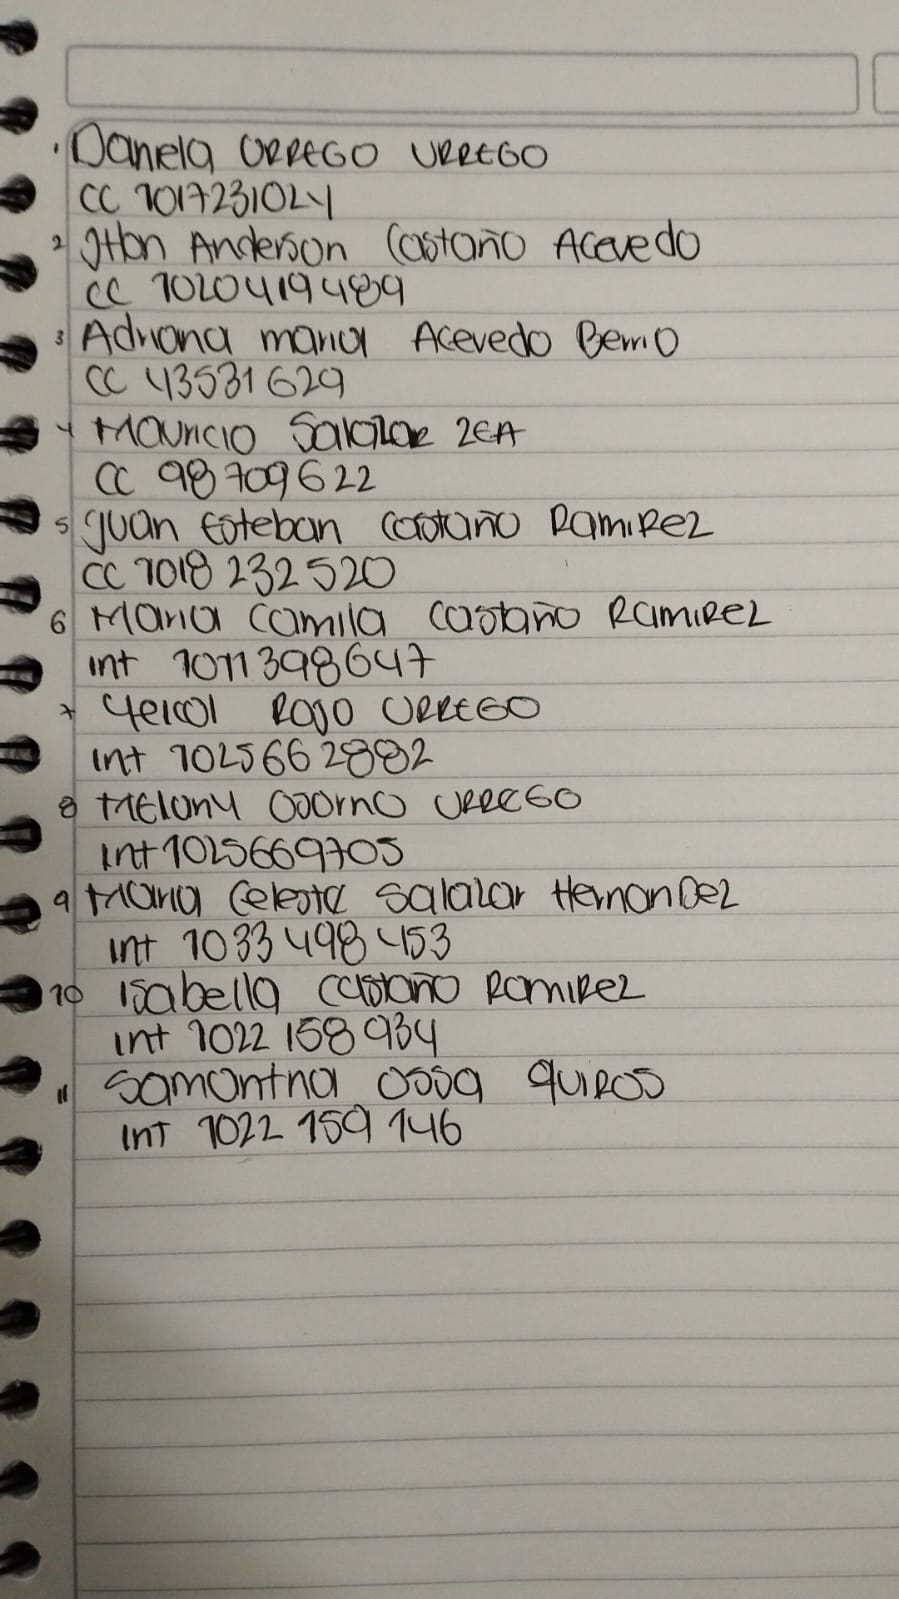 1 Daniela URREGO URREGO
CC 1017231024
2 JHon Anderson Castaño Acevedo
CC 1020419489
3 Adriana maria Acevedo Berrio
CC 43531629
4 MAuricio Salazar ZEA
CC 98709622
5 Juan Esteban Castaño RamiRez
CC 1018 232 520
6 Maria Camila Castaño RamiREZ
int 1011398647
7 Yeicol ROJO URREGO
int 1025662882
8 MElany OsornO URREGO
int 1025669705
9 Maria Celeste Salazar HernanDez
int 1033 498 453
10 isabella Castaño RamiRez
int 1022 158 934
11 Samantha Ossa QUIROS
INT 1022 159 146